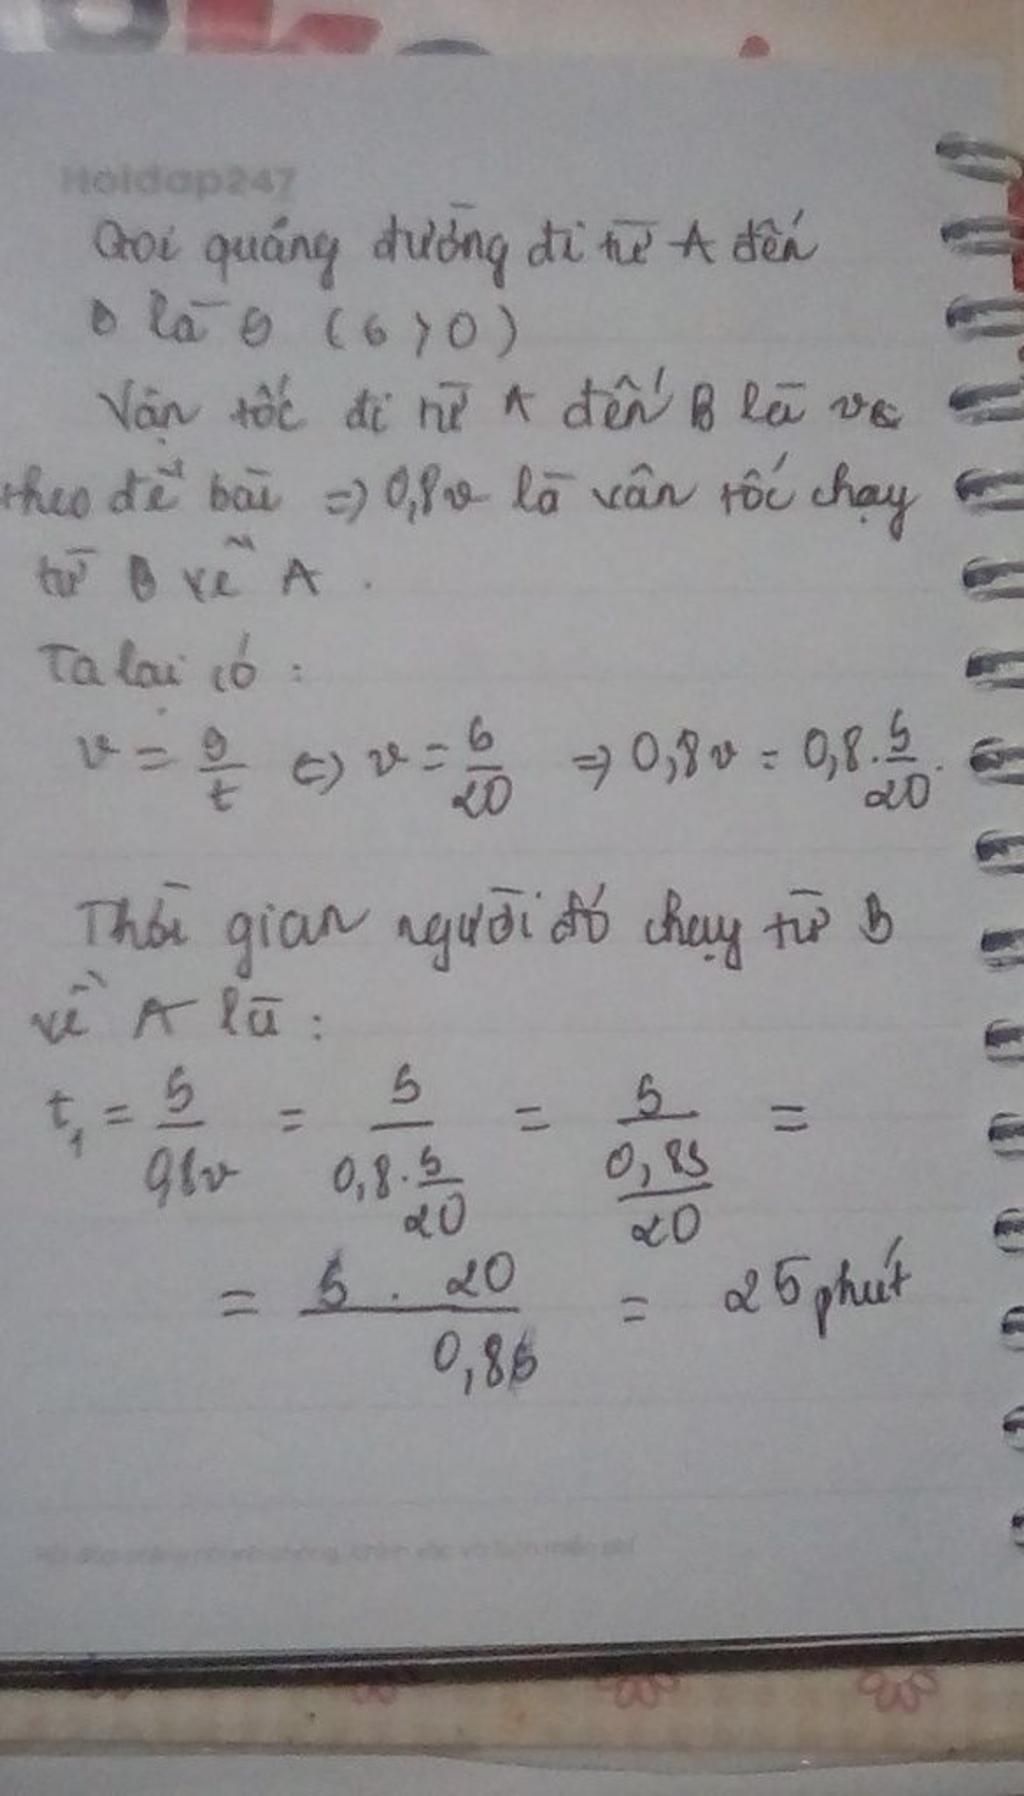 Hoidap247
Gọi quãng đường đi từ A đến
B là s (s > 0)
Vận tốc đi từ A đến B là v
theo đề bài => 0,8v là vân tốc chạy
từ B về A.
Ta lại có :
v = s/t <=> v = s/20 => 0,8v = 0,8 . s/20.
Thời gian người đó chạy từ B
về A là :
t₁ = s/0,8v = s/(0,8 . s/20) = s/(0,8s/20) =
= s . 20/0,8s = 25 phút